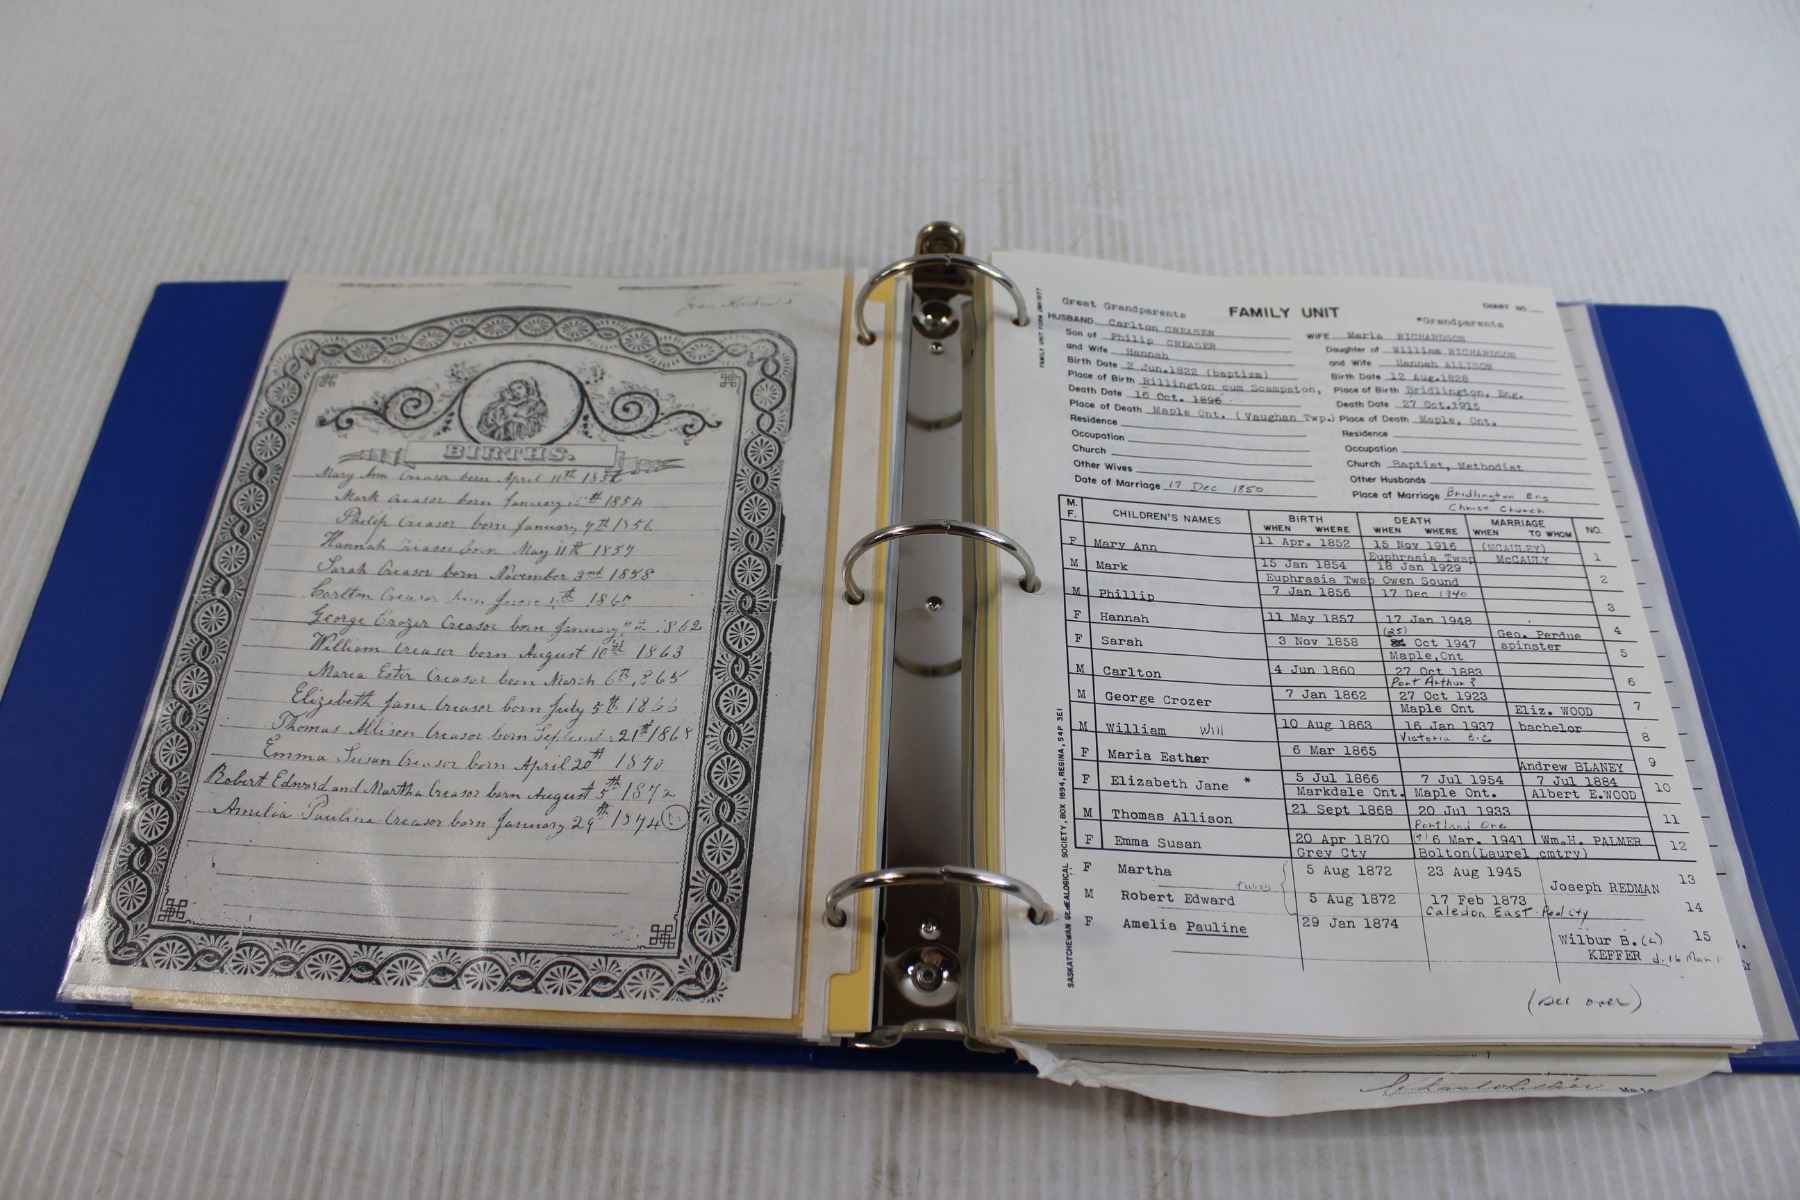 BIRTHS.
Mary Ann Creasor born April 11th 1852
Mark Creasor born January 15th 1854
Philip Creasor born January 7th 1856
Hannah Creasor born May 11th 1857
Sarah Creasor born November 3nd 1858
Carlton Creasor born June 4th 1860
George Crozer Creasor born January 1862
William Creasor born August 10th 1863
Maria Ester Creasor born March 6th 1865
Elizabeth Jane Creasor born July 5th 1866
Thomas Allison Creasor born September 21st 1868
Emma Susan Creasor born April 20th 1870
Robert Edward and Martha Creasor born August 5th 1872
Amelia Paulina Creasor born January 29th 1874
FAMILY UNIT FORM
Great Grandparents FAMILY UNIT CHART NO.
*Grandparents
HUSBAND Carlton CREASER WIFE Maria RICHARDSON
Son of Philip CREASER Daughter of William RICHARDSON
and Wife Hannah and Wife Hannah ALLISON
Birth Date 2 Jun.1822 (baptizm) Birth Date 12 Aug.1828
Place of Birth Rillington cum Scampston, Place of Birth Bridlington, Eng.
Death Date 16 Oct. 1896 Death Date 27 Oct.1915
Place of Death Maple Ont. (Vaughan Twp.) Place of Death Maple, Ont.
Residence Residence
Occupation Occupation
Church Church Baptist, Methodist
Other Wives Other Husbands
Date of Marriage 17 Dec 1850 Place of Marriage Bridlington Eng
Christ Church
M. F. CHILDREN'S NAMES BIRTH WHEN WHERE DEATH WHEN WHERE MARRIAGE WHEN TO WHOM NO.
F Mary Ann 11 Apr. 1852 15 Nov 1916 (MCAULEY) 1
Euphrasia Twsp McCAULY
M Mark 15 Jan 1854 18 Jan 1929 2
Euphrasia Twsp Owen Sound
M Phillip 7 Jan 1856 17 Dec 1940 3
F Hannah 11 May 1857 17 Jan 1948 Geo. Perdue 4
F Sarah 3 Nov 1858 (25) Oct 1947 spinster 5
Maple, Ont
M Carlton 4 Jun 1860 27 Oct 1883 6
Port Arthur?
M George Crozer 7 Jan 1862 27 Oct 1923 7
Maple Ont Eliz. WOOD
M William Will 10 Aug 1863 16 Jan 1937 bachelor 8
Victoria B.C
F Maria Esther 6 Mar 1865 Andrew BLANEY 9
F Elizabeth Jane * 5 Jul 1866 7 Jul 1954 7 Jul 1884 10
Markdale Ont. Maple Ont. Albert E.WOOD
M Thomas Allison 21 Sept 1868 20 Jul 1933 11
Portland Ore
F Emma Susan 20 Apr 1870 6 Mar. 1941 Wm.H. PALMER 12
Grey Cty Bolton(Laurel cmtry)
F Martha twins 5 Aug 1872 23 Aug 1945 Joseph REDMAN 13
M Robert Edward 5 Aug 1872 17 Feb 1873 14
Caledon East
F Amelia Pauline 29 Jan 1874 Wilbur B. 15
KEFFER d. 16 Mar
(see over)
SASKATCHEWAN GENEALOGICAL SOCIETY, BOX 1894, REGINA, S4P 3E1